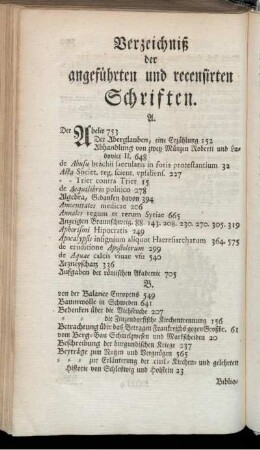 Verzeichniß
der
angeführten und recensirten
Schriften.
A.
Der Abelit 753
Der Aberglauben, eine Erzählung 152
Abhandlung von zwey Münzen Roberti und Lu-
dovici II. 648
de Abusu brachii saecularis in foris protestantium 32
Acta Societ. reg. scient. vpsaliens. 227
Trier contra Trier 15
de Aequilibrio politico 278
Algebra, Gedanken davon 394
Amoenitates medicae 206
Annales regum et rerum Syriae 665
Anzeigen Braunschweig. 88. 143. 208. 230. 270. 305. 319
Aphorismi Hippocratis 749
Apocalypsis insignium aliquot Haeresiarcharum 364. 575
de eruditione Apostolorum 299
de Aquae calcis viuae vsu 540
Arzneyschatz 336
Aufgaben der dänischen Academie 705
B.
von der Balance Europens 549
Baumwolle in Schweden 641
Bedenken über die Viehseuche 207
die Zinzendorfische Kirchentrennung 156
Betrachtung über das Betragen Frankreichs gegen Großbr. 61
von Berg- Bau Schürfgwesen und Markscheiden 20
Beschreibung der burgundischen Kriege 237
Beyträge zum Nutzen und Vergnügen 565
zur Erläuterung der civil- Kirchen- und gelehrten
Historie von Schleswig und Holstein 23
Biblio-